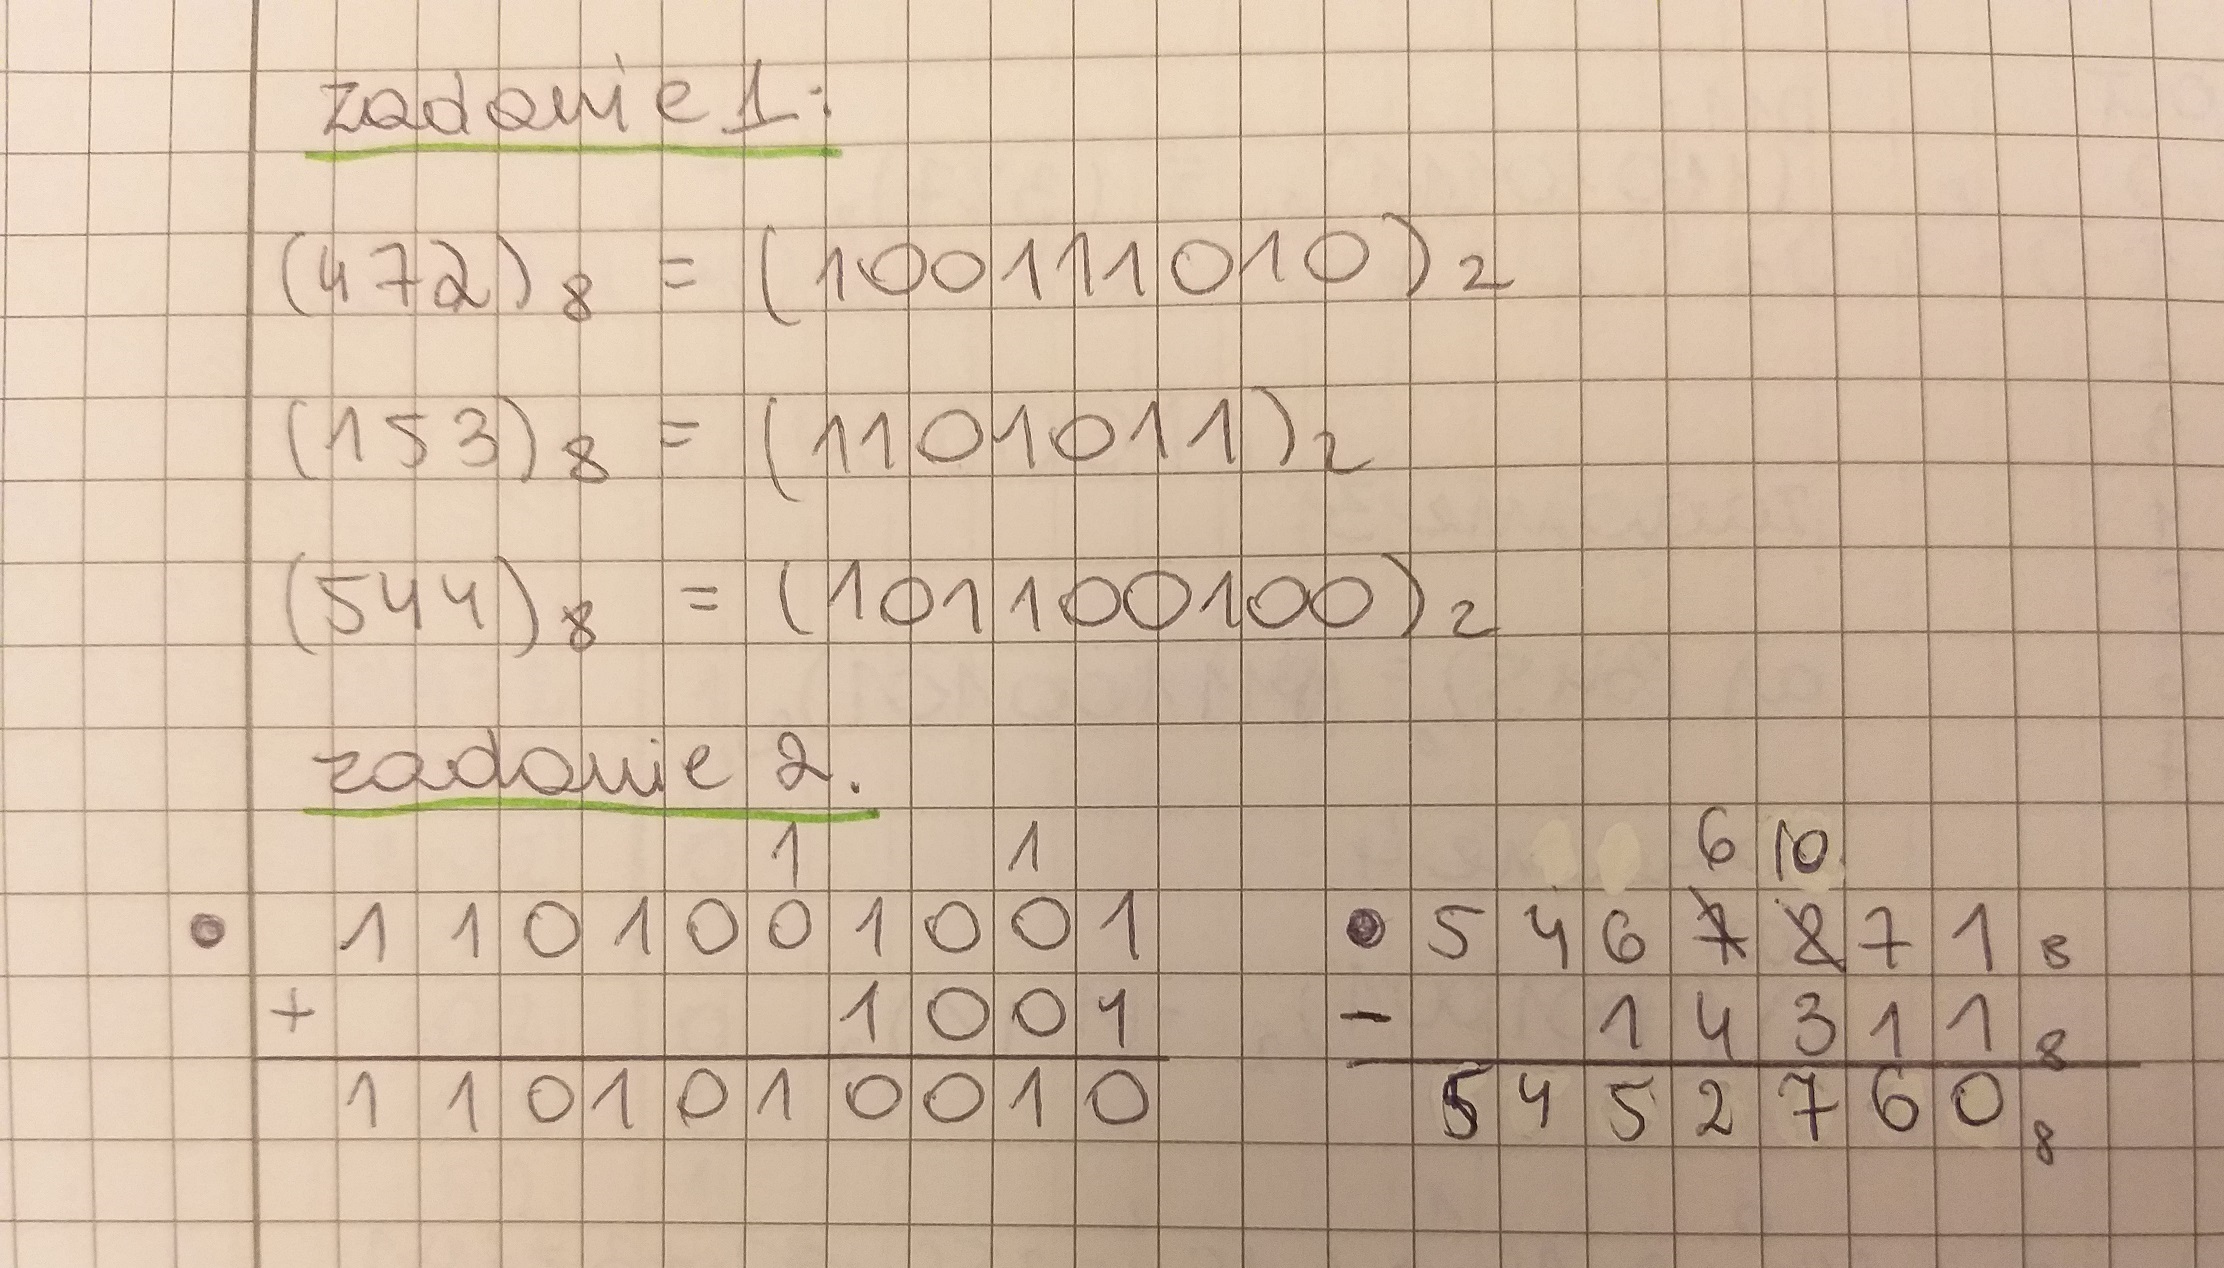 zadanie 1:
(472)8 = (100111010)2
(153)8 = (1101011)2
(544)8 = (101100100)2
zadanie 2.
1 1
1101001001
+ 1001
1101010010
6 10
5467271 8
- 14311 8
5452760 8